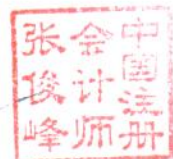 中国注册
会计师
张俊峰